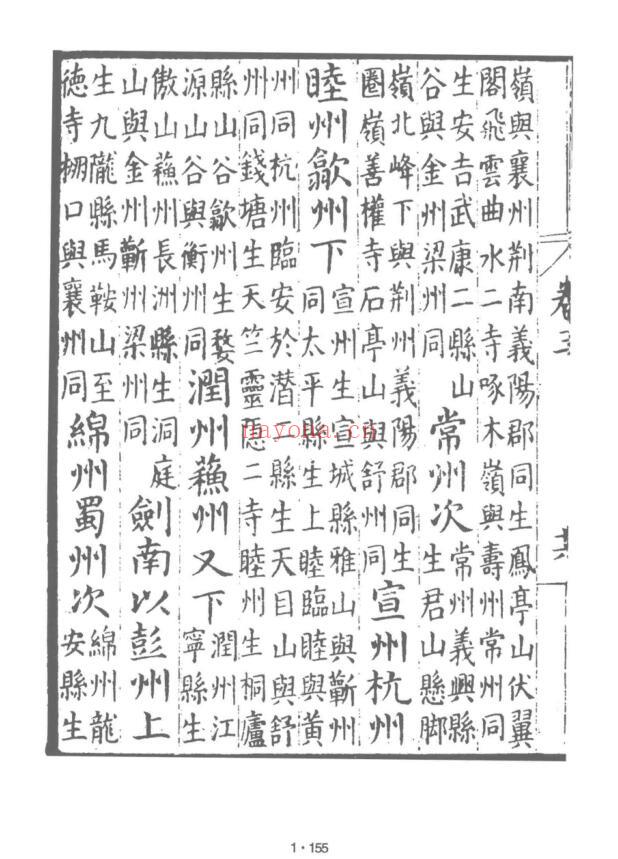 嶺與襄州荆南義陽郡同生鳳亭山伏翼
閣飛雲曲水二寺啄木嶺與壽州常州同
生安吉武康二縣山
谷與金州梁州同
常州次
常州義興縣
生君山懸脚
嶺北峰下與荆州義陽郡同生
圈嶺善權寺石亭山與舒州同
宣州杭州
睦州歙州下
宣州生宣城縣雅山與蘄州
同太平縣生上睦臨睦與黄
州同杭州臨安於潛二縣生天目山與舒
州同錢塘生天竺靈隱二寺睦州生桐廬
縣山谷歙州生婺
源山谷與衡州同
潤州蘓州又下
潤州江
寧縣生
傲山蘓州長洲縣生洞庭
山與金州蘄州梁州同
劍南以彭州上
生九隴縣馬鞍山至
德寺棚口與襄州同
綿州蜀州次
綿州龍
安縣生
nayona.cn
1·155